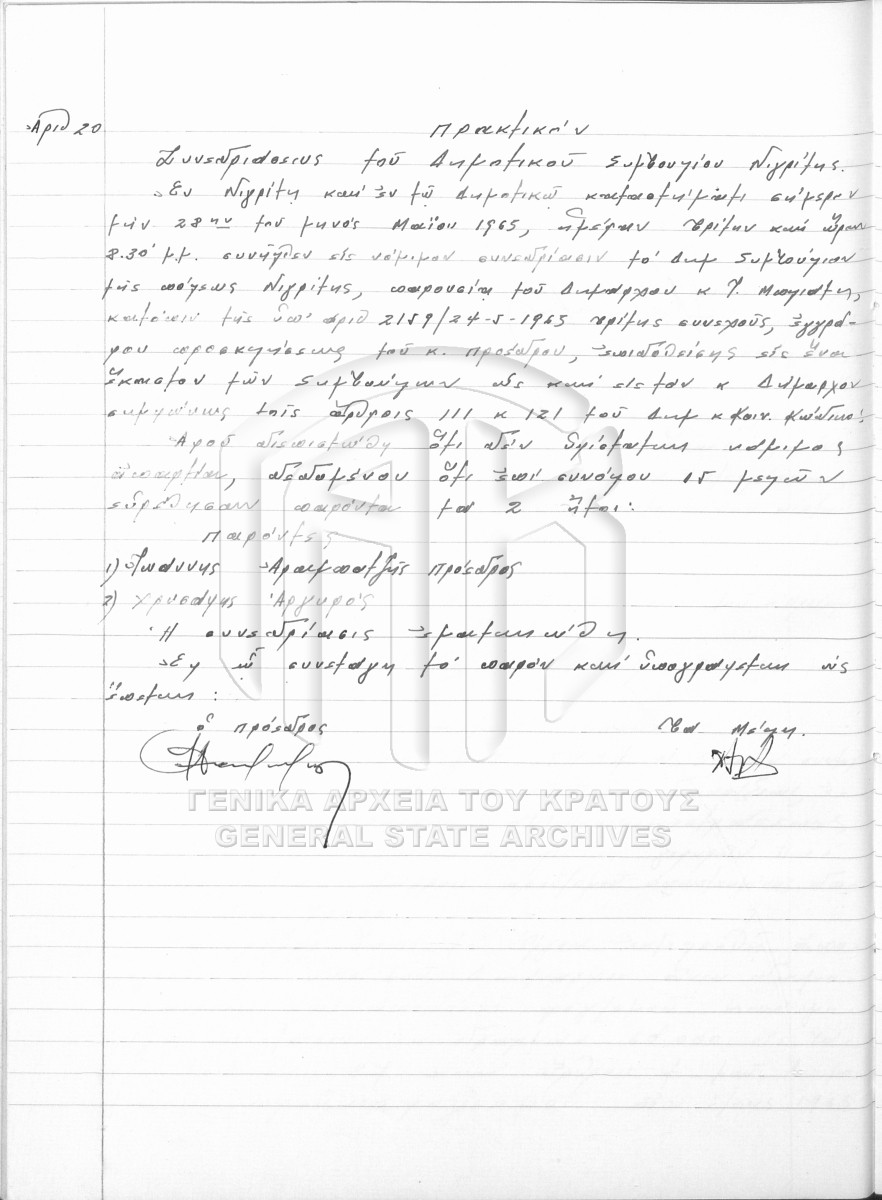 Ἀριθ 20
Πρακτικὴν
Συνεδριάσεως τοῦ Δημοτικοῦ Συμβουλίου Νιγρίτης.
Ἐν Νιγρίτῃ καὶ ἐν τῷ Δημοτικῷ καταστήματι σήμερον
τὴν 28ην τοῦ μηνὸς Μαΐου 1965, ἡμέραν τρίτην καὶ ὥραν
8.30' μ.μ. συνῆλθεν εἰς νόμιμον συνεδρίασιν τὸ Δημ Συμβούλιον
τῆς πόλεως Νιγρίτης, παρουσίᾳ τοῦ Δημάρχου κ.
κατόπιν τῆς ὑπ' ἀριθ 2159/24-5-1965 τρίτης συνεχοῦς, ἐγγρά-
φου προσκλήσεως τοῦ κ. Προέδρου, ἐπιδοθείσης εἰς ἕνα
ἕκαστον τῶν Συμβούλων ὡς καὶ εἰς τὸν κ Δήμαρχον
συμφώνως τοῖς ἄρθροις 111 κ 121 τοῦ Δημ κ Κοιν. Κώδικος.
Ἀφοῦ διεπιστώθη ὅτι δὲν ὑφίσταται νόμιμος
ἀπαρτία, δεδομένου ὅτι ἐπὶ συνόλου 15 μελῶν
εὑρέθησαν παρόντα τὰ 2 ἤτοι:
Παρόντες
1) Ἰωάννης Ἀραμπατζῆς Πρόεδρος
2) Χρυσάφης Ἀργυρός
Ἡ συνεδρίασις ἐματαιώθη.
Ἐφ' ᾧ συνετάγη τὸ παρὸν καὶ ὑπογράφεται ὡς
ἕπεται:
ὁ Πρόεδρος
Τὰ Μέλη.
ΓΕΝΙΚΑ ΑΡΧΕΙΑ ΤΟΥ ΚΡΑΤΟΥΣ
GENERAL STATE ARCHIVES